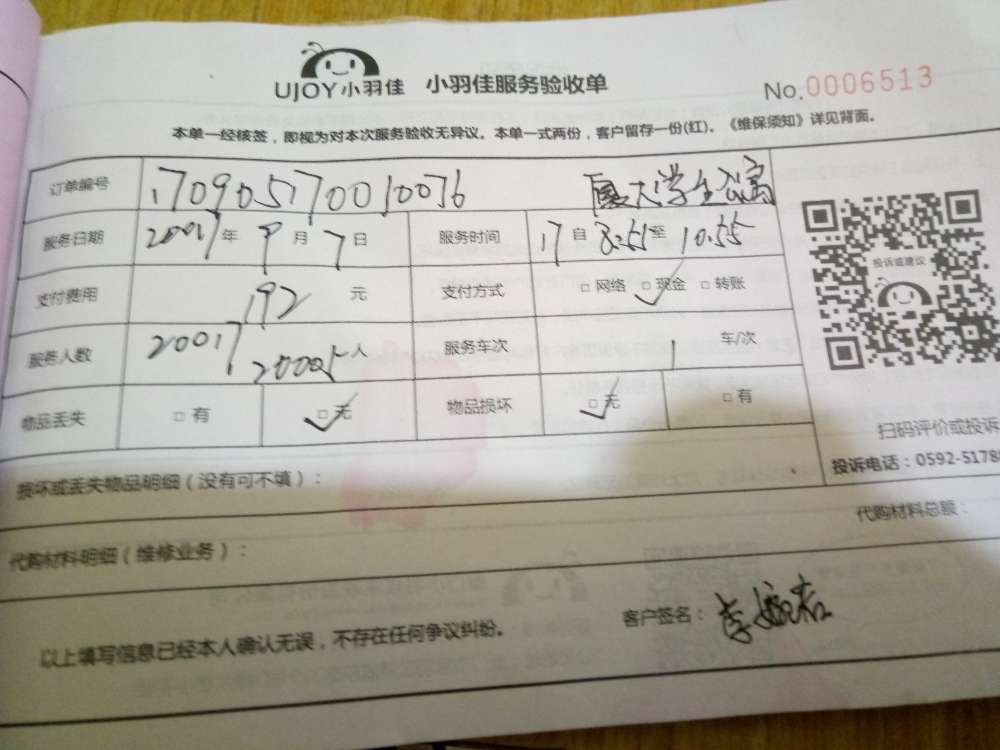 UJOY小羽佳 小羽佳服务验收单 No.0006513
本单一经核签，即视为对本次服务验收无异议。本单一式两份，客户留存一份(红)。《维保须知》详见背面。
订单编号 170905170010076 厦大学生公寓
服务日期 2017年9月7日 服务时间 17自8:51至10.55
支付费用 192 元 支付方式 □网络 □现金 □转账
服务人数 20017 20005 人 服务车次 1 车/次
物品丢失 □有 □无 物品损坏 □无 □有
投诉或建议
扫码评价或投诉
投诉电话：0592-5178
损坏或丢失物品明细（没有可不填）：
代购材料明细（维修业务）： 代购材料总额：
以上填写信息已经本人确认无误，不存在任何争议纠纷。 客户签名：李婉君